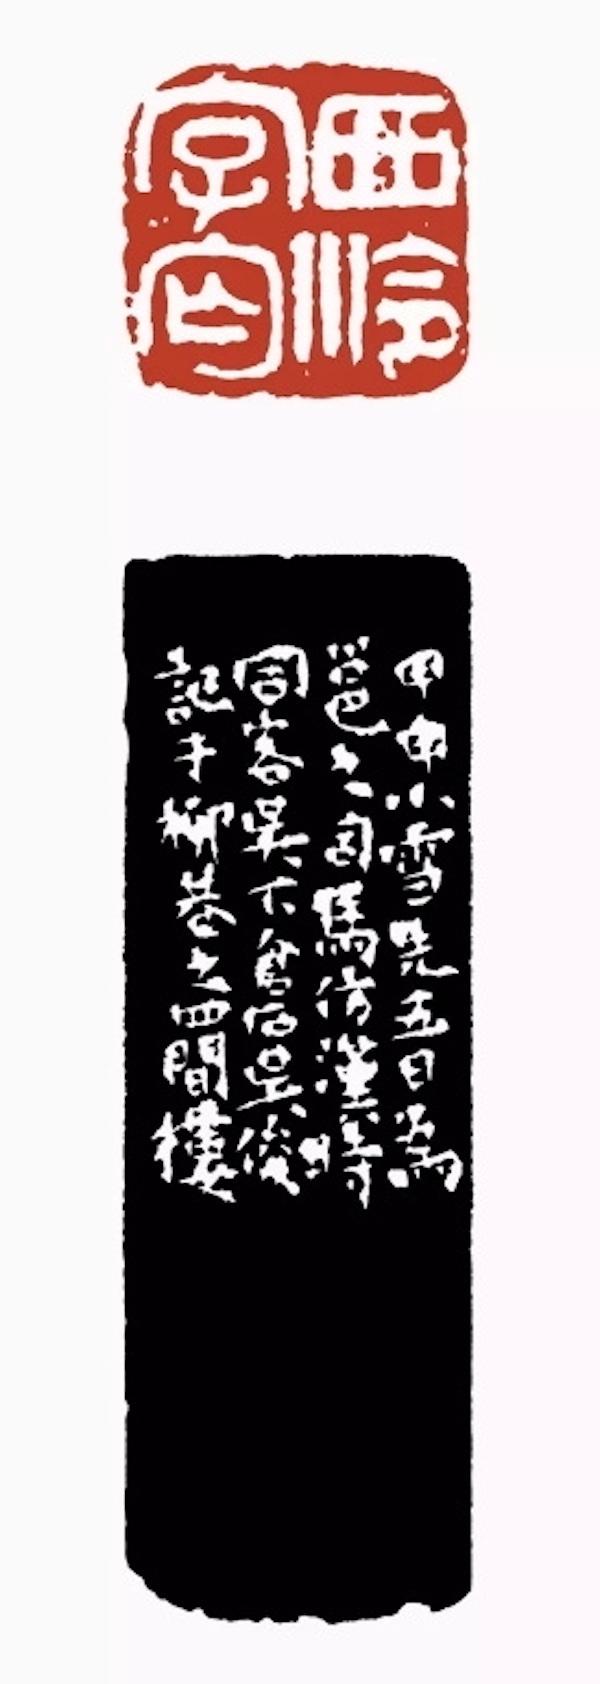 西泠
字丐
甲申小雪先五日為
邕之司馬仿漢時
同客吳下倉石吳俊
記于柳巷之四間樓